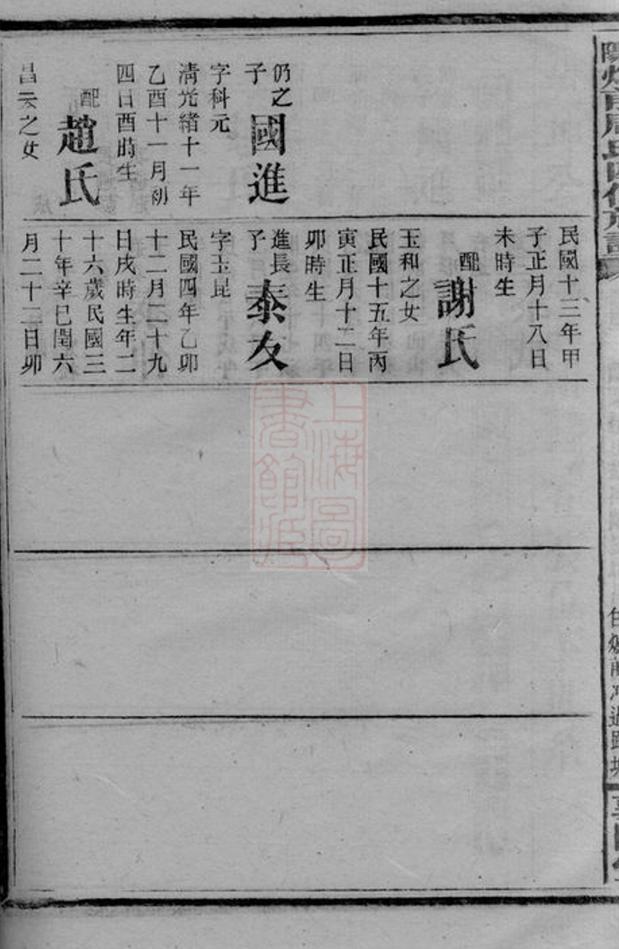 仍之子
國進
字科元
清光緒十一年
乙酉十一月初
四日酉時生
配
趙氏
昌云之女
民國十三年甲
子正月十八日
未時生
配
謝氏
玉和之女
民國十五年丙
寅正月十二日
卯時生
進長子
泰友
字玉昆
民國四年乙卯
十二月二十九
日戌時生年二
十六歲民國三
十年辛巳閏六
月二十二日卯
上海圖
書館藏